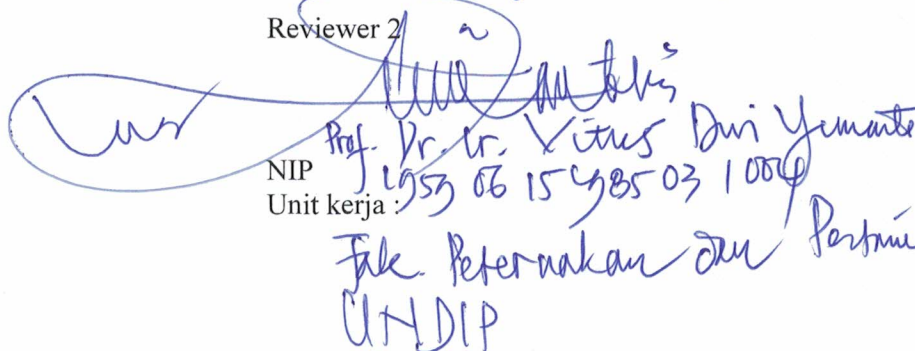 Reviewer 2
Prof. Dr. Ir. Vitus Dwi Yunianto
NIP 1959 06 15 1985 03 1 004
Unit kerja :
Fak. Peternakan dan Pertanian
UNDIP